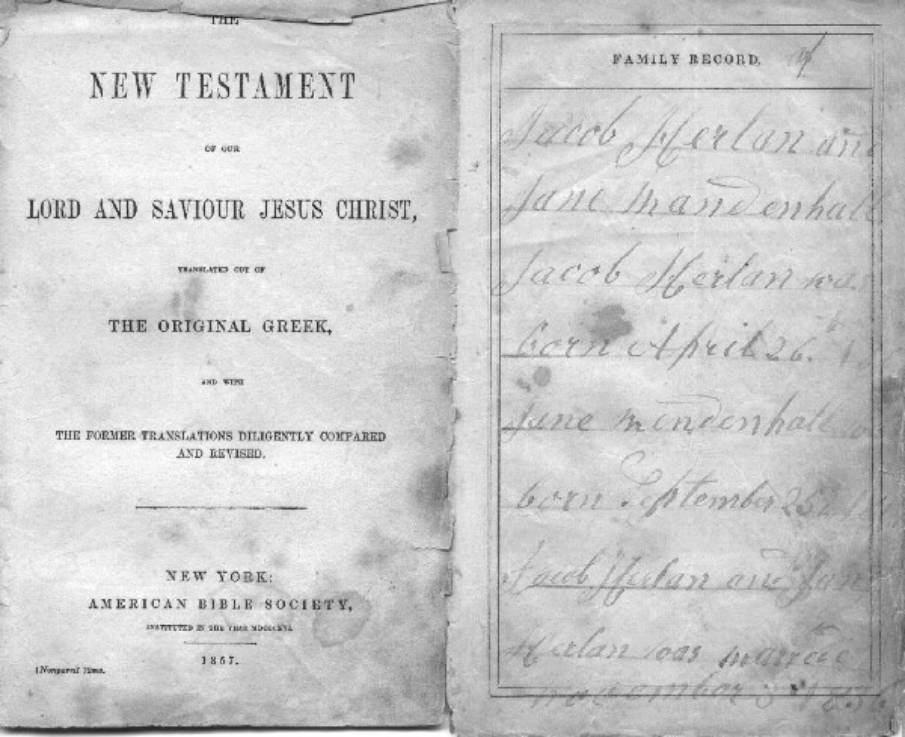 THE
NEW TESTAMENT
OF OUR
LORD AND SAVIOUR JESUS CHRIST,
TRANSLATED OUT OF
THE ORIGINAL GREEK,
AND WITH
THE FORMER TRANSLATIONS DILIGENTLY COMPARED
AND REVISED.
NEW YORK:
AMERICAN BIBLE SOCIETY,
INSTITUTED IN THE YEAR MDCCCXVI.
1857.
FAMILY RECORD. of
Jacob Herlan and
Jane Mandenhall
Jacob Herlan was
born April 26.
Jane mendenhall
born September 25
Jacob Herlan and Jane
Herlan was married
november